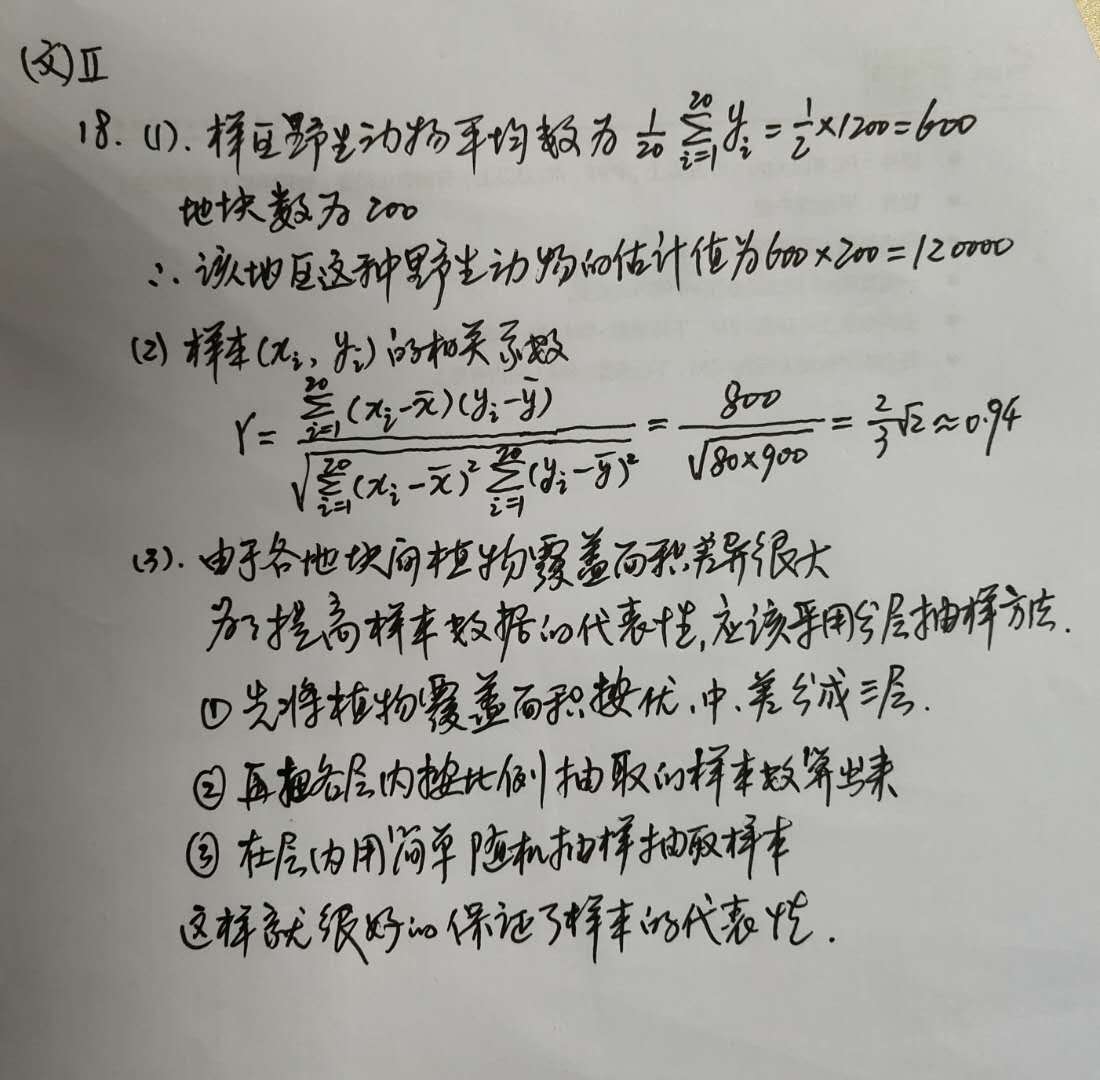 (文)Ⅱ
18. (1). 样区野生动物平均数为 1/20 ∑_{i=1}^{20} y_i = 1/2 ×1200 = 600
地块数为 200
∴ 该地区这种野生动物的估计值为600×200=120000
(2) 样本(x_i, y_i)的相关系数
r = ∑_{i=1}^{20}(x_i-x̄)(y_i-ȳ) / √(∑_{i=1}^{20}(x_i-x̄)² ∑_{i=1}^{20}(y_i-ȳ)²) = 800/√(80×900) = 2/3 √2 ≈ 0.94
(3). 由于各地块间植物覆盖面积差异很大
为了提高样本数据的代表性,应该采用分层抽样方法.
① 先将植物覆盖面积按优、中、差分成三层.
② 再把各层内按比例抽取的样本数算出来
③ 在层内用简单随机抽样抽取样本
这样就很好的保证了样本的代表性.